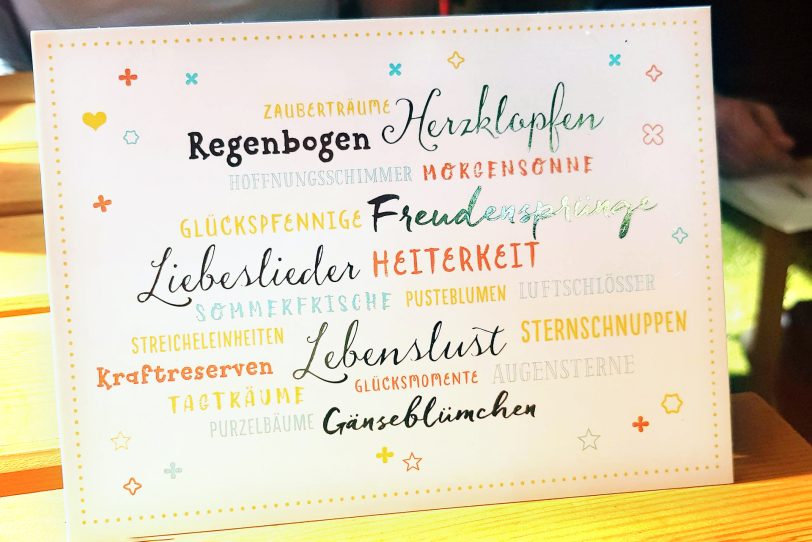 ZAUBERTRÄUME Herzklopfen
Regenbogen
HOFFNUNGSSCHIMMER MORGENSONNE
GLÜCKSPFENNIGE Freudensprünge
Liebeslieder HEITERKEIT
SOMMERFRISCHE PUSTEBLUMEN LUFTSCHLÖSSER
STREICHELEINHEITEN Lebenslust STERNSCHNUPPEN
Kraftreserven GLÜCKSMOMENTE AUGENSTERNE
TAGTRÄUME
PURZELBÄUME Gänseblümchen